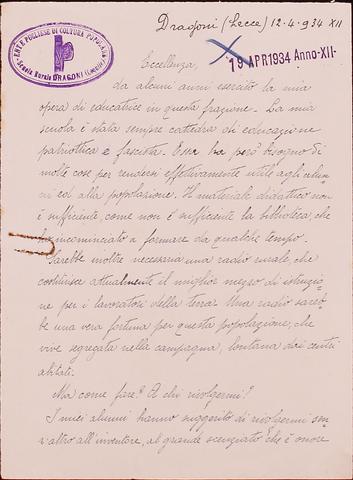 ENTE PUGLIESE DI COLTURA POPOLARE
Scuola Rurale DRAGONI (Lecce)
Dragoni (Lecce) 12-4-934 XII
19 APR 1934 Anno-XII-
Eccellenza,
da alcuni anni esercito la mia
opera di educatrice in questa frazione. La mia
scuola è stata sempre cattedra di educazione
patriottica e fascista. Essa ha però bisogno di
molte cose per rendersi effettivamente utile agli alun
ni ed alla popolazione. Il materiale didattico non
è sufficiente, come non è sufficiente la biblioteca, che
ho incominciato a formare da qualche tempo.
Sarebbe inoltre necessaria una radio rurale, che
costituisce attualmente il miglior mezzo di istruzio
ne per i lavoratori della terra. Una radio sareb
be una vera fortuna per questa popolazione, che
vive segregata nella campagna, lontana dai centri
abitati.
Ma come fare? A chi rivolgermi?
I miei alunni hanno suggerito di rivolgermi sen
z'altro all'inventore, al grande scenziato che è onore